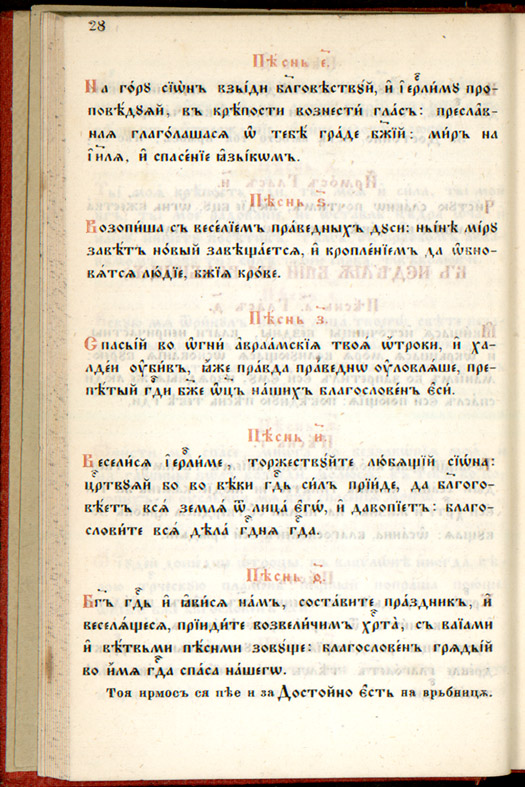 28
Пѣснь є҃.
На го́рꙋ сїѡ́нъ взы́ди благовѣствꙋ́й, и҆ і҆ерⷭ҇ли́мꙋ про-
повѣ́дꙋѧй, въ крѣ́пости вознести́ гла́съ: пресла́в-
наѧ глаго́лашасѧ ѡ҆ тебѣ̀ гра́де бж҃їй: ми́ръ на
і҆и҃лѧ, и҆ спасе́нїе ꙗ҆зы́кѡмъ.
Пѣснь ѕ҃.
Возопи́ша съ весе́лїемъ пра́ведныхъ дꙋ́си: ны́нѣ мі́рꙋ
завѣ́тъ но́вый завѣща́етсѧ, и҆ кропле́нїемъ да ѡ҆бно-
вѧ́тсѧ лю́дїе, бж҃їѧ кро́ве.
Пѣснь з҃.
Спасы́й во ѻ҆гнѝ авраа́мскїѧ твоѧ̑ ѻ҆́троки, и҆ ха-
лде́и ᲂу҆би́въ, ꙗ҆̀же пра́вда пра́веднѡ ᲂу҆ловлѧ́ше, пре-
пѣ́тый гдⷭ҇и бж҃е ѻ҆ц҃ъ на́шихъ благослове́нъ є҆сѝ.
Пѣснь и҃.
Весели́сѧ і҆ерⷭ҇ли́ме, торжествꙋ́йте лю́бѧщїй сїѡ́на:
црⷭ҇твꙋѧй во во вѣ́ки гдⷭ҇ь си́лъ прїи́де, да благого-
вѣ́етъ всѧ̀ землѧ̀ ѿ лица̀ є҆гѡ̀, и҆ да вопїе́тъ: благо-
слови́те всѧ̑ дѣла̀ гдⷭ҇нѧ гдⷭ҇а.
Пѣснь ѳ҃.
Бг҃ъ гдⷭ҇ь и҆ ꙗ҆ви́сѧ на́мъ, соста́вите пра́здникъ, и҆
веселѧ́щесѧ, прїиди́те возвели́чимъ хрⷭ҇та̀, съ ва́їами
и҆ вѣ́твьми пѣ́сними зовꙋ́ще: благослове́нъ грѧды́й
во и҆́мѧ гдⷭ҇а спа́са на́шегѡ.
Тоя ирмосъ ся пѣе и за Досто́йно є҆́сть на врьбницѫ.